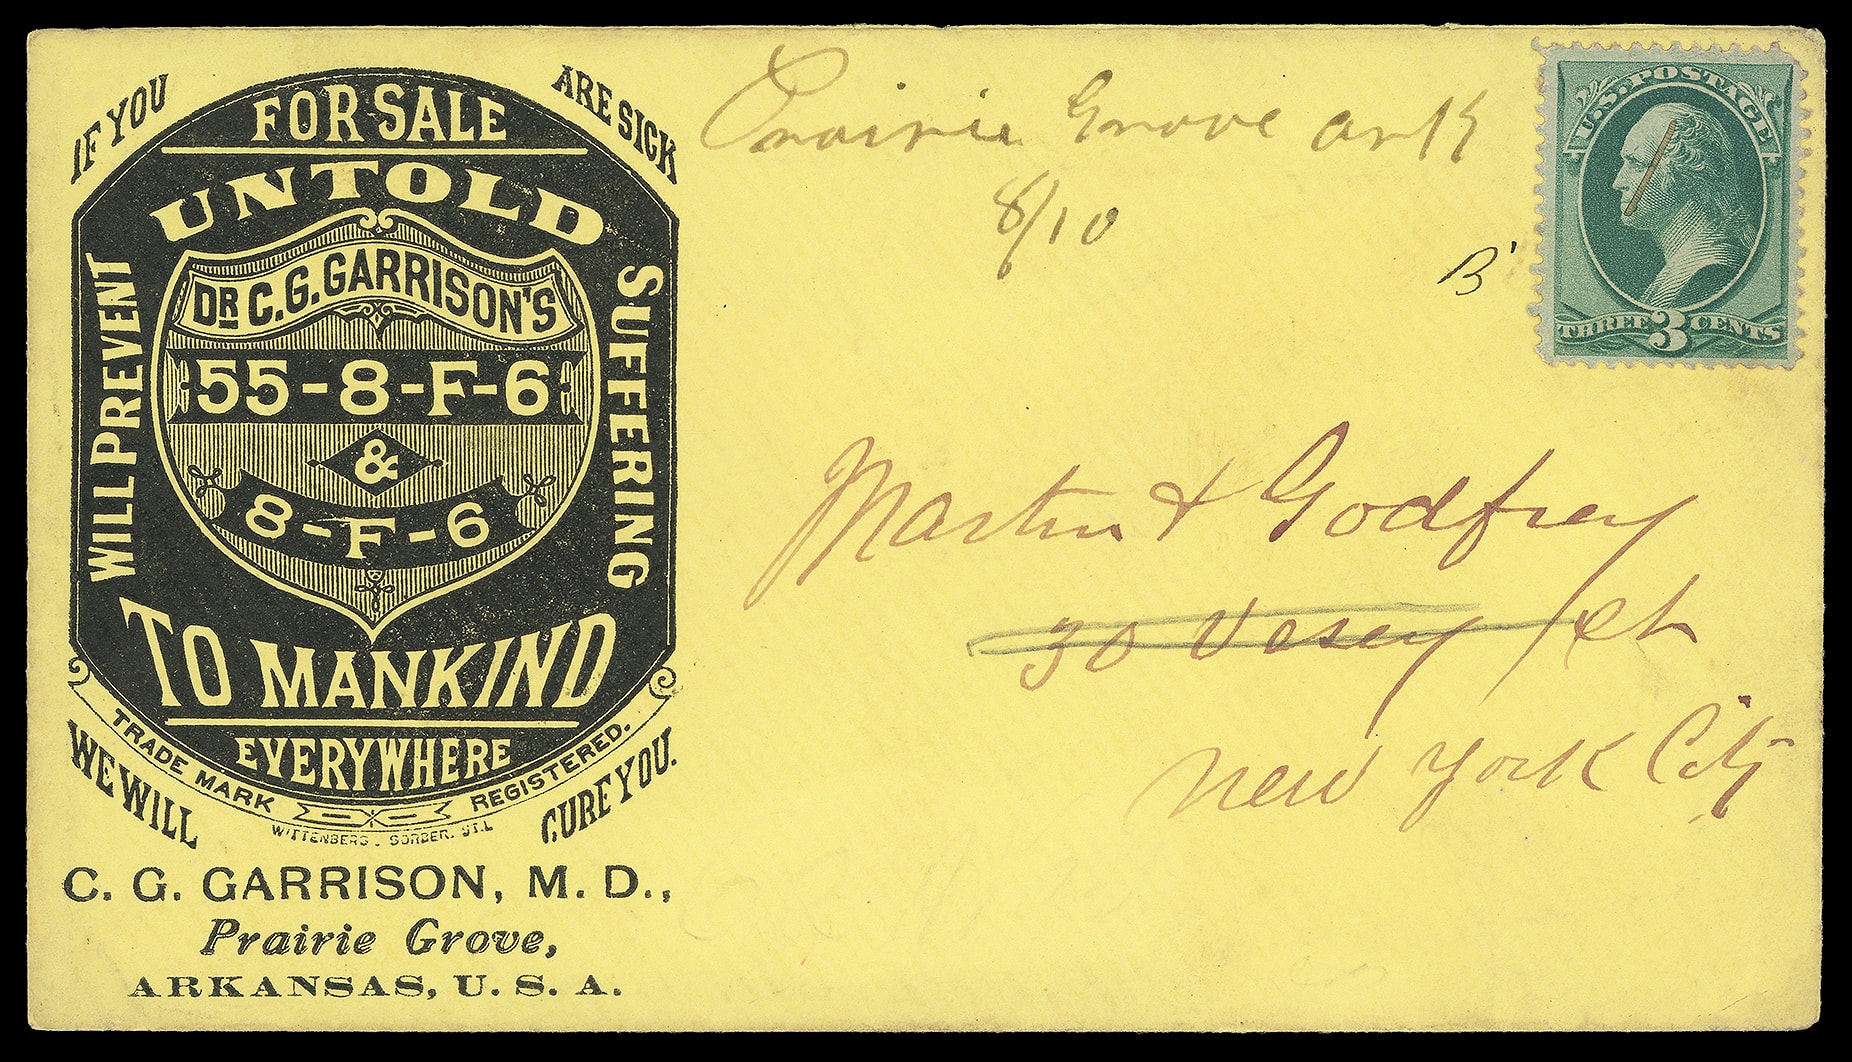 IF YOU ARE SICK
FOR SALE
UNTOLD
DR C. G. GARRISON'S
55-8-F-6
&
8-F-6
WILL PREVENT
SUFFERING
TO MANKIND
EVERYWHERE
TRADE MARK REGISTERED.
WITTENBERG. SORBER. ST.L
WE WILL CURE YOU.
C. G. GARRISON, M. D.,
Prairie Grove,
ARKANSAS, U. S. A.
Prairie Grove ark
8/10
B
U.S. POSTAGE
THREE 3 CENTS
Martin & Godfrey
30 Vesey St
New York City